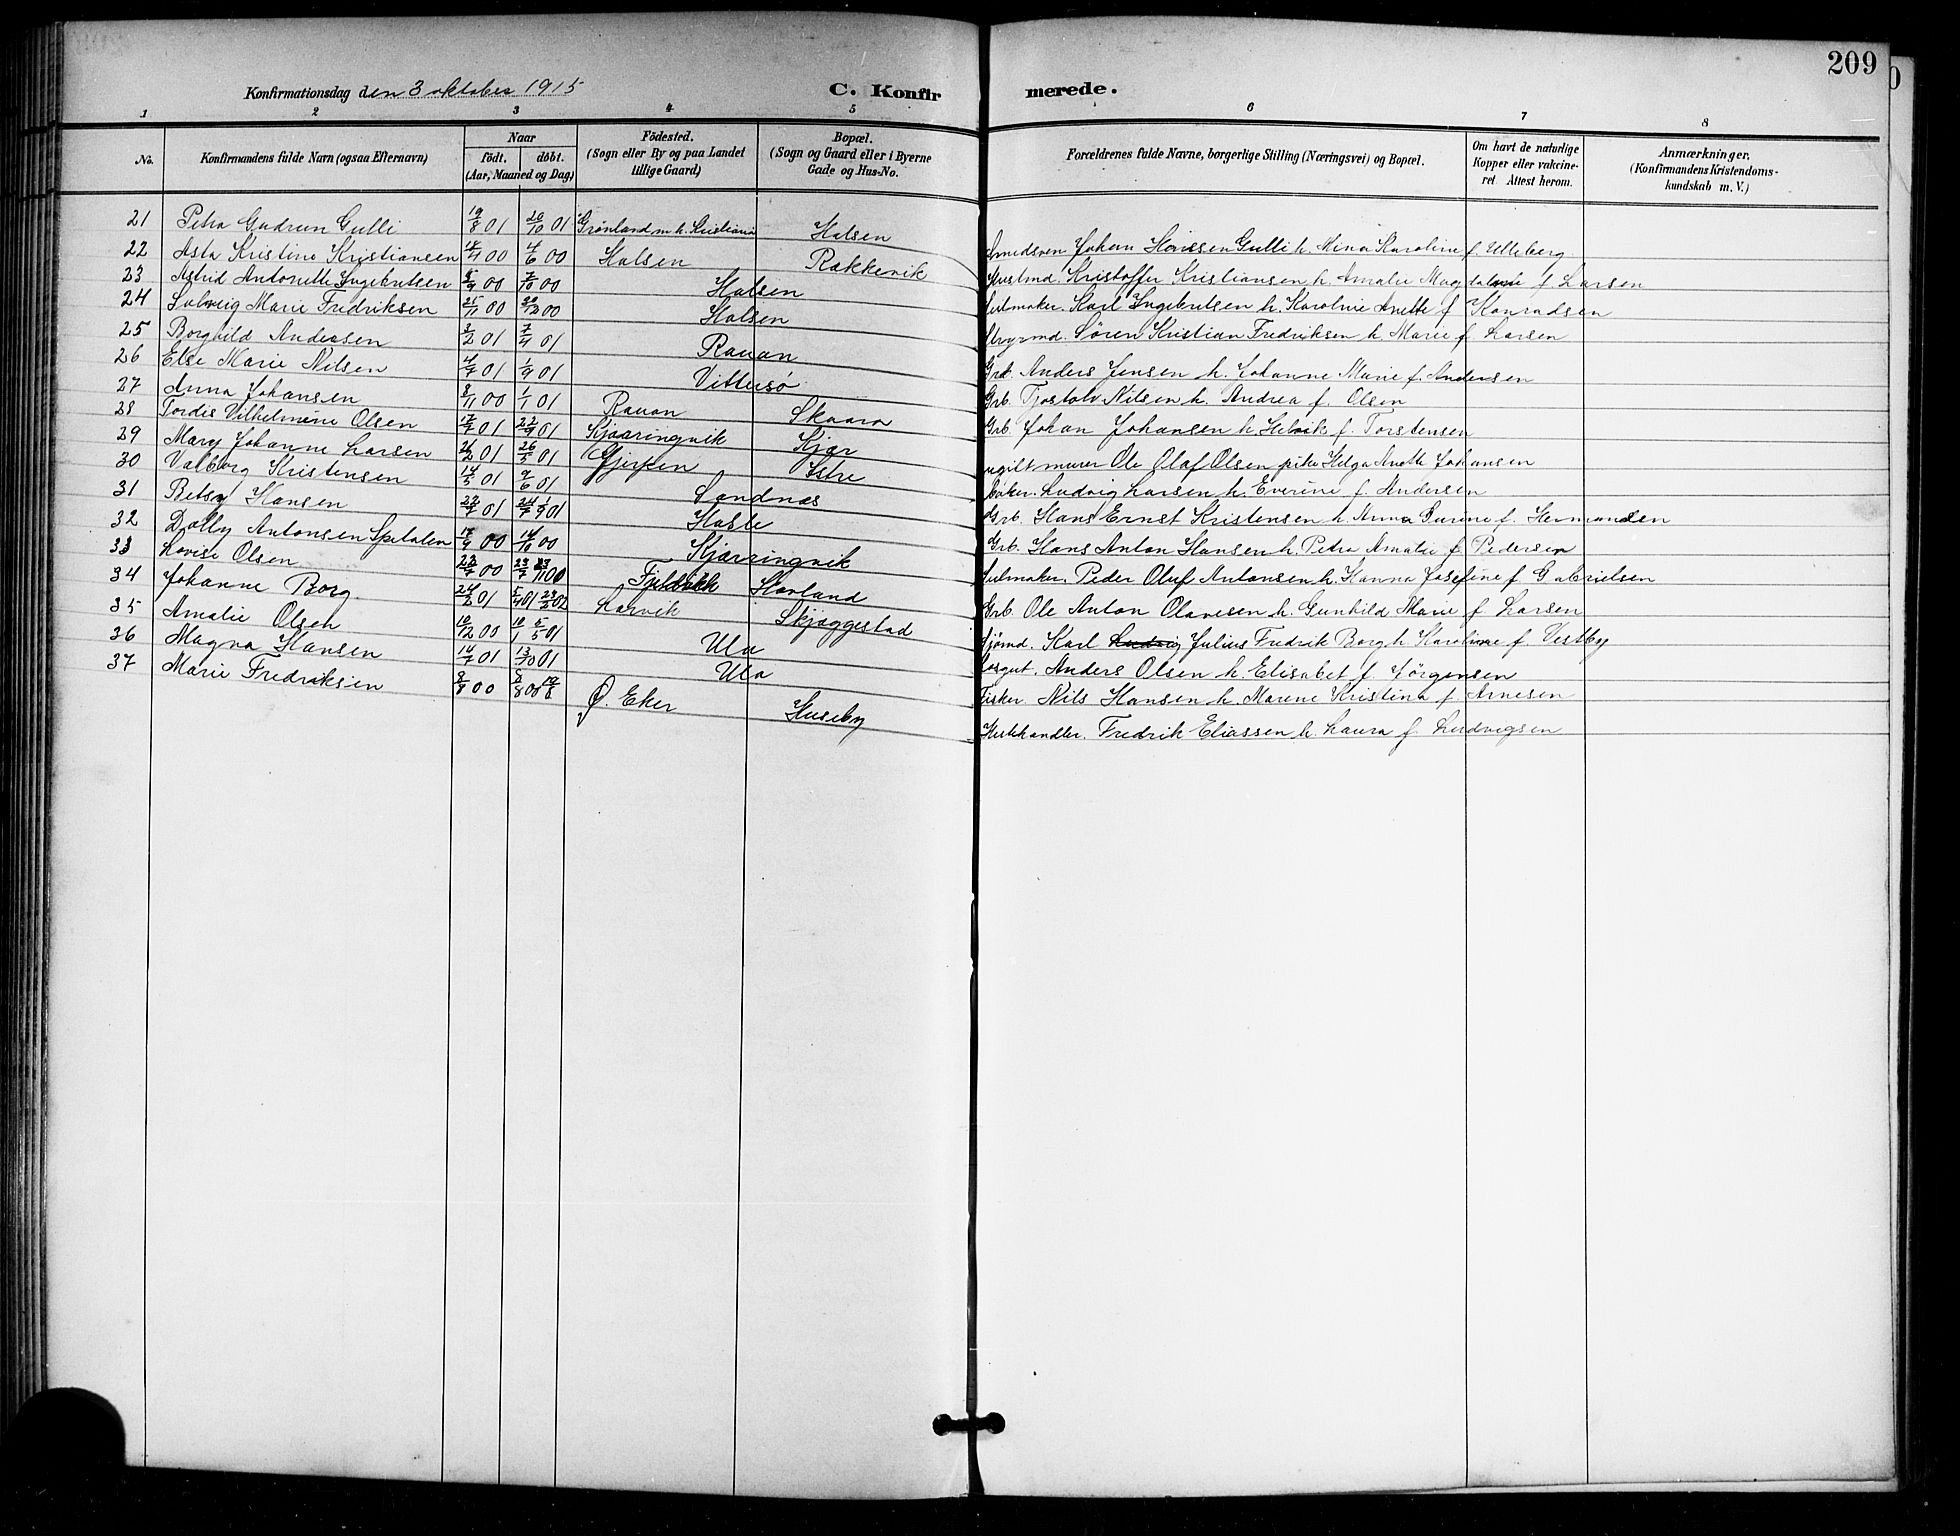 209
Konfirmationsdag den 3 oktober 1915 C. Konfir merede.
1 2 3 4 5 6 7 8
No. Konfirmandens fulde Navn (ogsaa Efternavn) Naar født. døbt. (Aar, Maaned og Dag) Fødested. (Sogn eller By og paa Landet tillige Gaard) Bopæl. (Sogn og Gaard eller i Byerne Gade og Hus-No. Forældrenes fulde Navne, borgerlige Stilling (Næringsvei) og Bopæl. Om havt de naturlige Kopper eller vakcineret Attest herom. Anmærkninger. (Konfirmandens Kristendomskundskab m. V.)
21 Petra Gudrun Gulli 19/8 01 20/10 01 Grønland m.h. Kristiania Halsen Smedsven Johan Hanssen Gulli h. Mina Karoline f. Ulleberg
22 Asta Kristine Kristiansen 00 4/6 00 Halsen Rækkevik Kristoffer Kristiansen h. Amalie Magdalene f Larsen
23 Astrid Antonette Ingebretsen 00 7/10 00 Halsen Seilmaker. Karl Ingebretsen h. Karoline Anette f Konradsen
24 Solveig Marie Fredriksen 25/11 00 30/12 00 Halsen Styrmd. Søren Kristian Fredriksen h. Marie f. Larsen
25 Borghild Andersen 3/2 01 7/4 01 Rauan Grb. Anders Jensen h. Johanne Marie f. Andersen
26 Else Marie Nilsen 4/7 01 1/9 01 Vittersø Grb. Tjostolv Nilsen h. Andrea f. Olsen
27 Anna Johansen 8/11 00 1/1 01 Rauan Skaara Grb. Johan Johansen h. Helvik f. Torstensen
28 Tordis Vilhelmine Olsen 17/7 01 22/9 01 Kjaaringvik Kjær ugilt murer Ole Olaf Olsen pike Helga Anette Johansen
29 Mary Johanne Larsen 01 26/5 01 Gjerpen Istre Ludvig Larsen h. Everine f. Andersen
30 Valborg Kristensen 14/5 01 9/6 01 Sandnæs Grb. Hans Ernst Kristensen h. Anna Gurine f. Hermandsen
31 Betsy Hansen 01 01 Hasle Grb. Hans Anton Hansen h. Petra Amalie f Pedersen
32 Dolly Antonsen Spetalen 00 14/10 00 Kjærringvik Seilmaker. Peder Oluf Antonsen h. Hanna Josefine f Gabrielsen
33 Lovise Olsen 00 00 Fjeldvik Havland Grb. Ole Anton Olavesen h. Gunhild Marie f Larsen
34 Johanne Borg. 24/2 01 Larvik Skjæggestad Sjømd. Karl Ludvig Julius Fredrik Borg h Karoline f. Vestby
35 Amalie Olsen 10/12 00 5/5 01 Ula Losgut. Anders Olsen h. Elisabet f. Jörgensen
36 Magna Hansen 14/7 01 13/10 01 Ula Fisker Nils Hansen h. Marene Kristina f Arnesen
37 Marie Fredriksen 8/8 00 00 Ø. Eker Huseby Hestehandler. Fredrik Eliassen h. Laura f. Ludvigsen